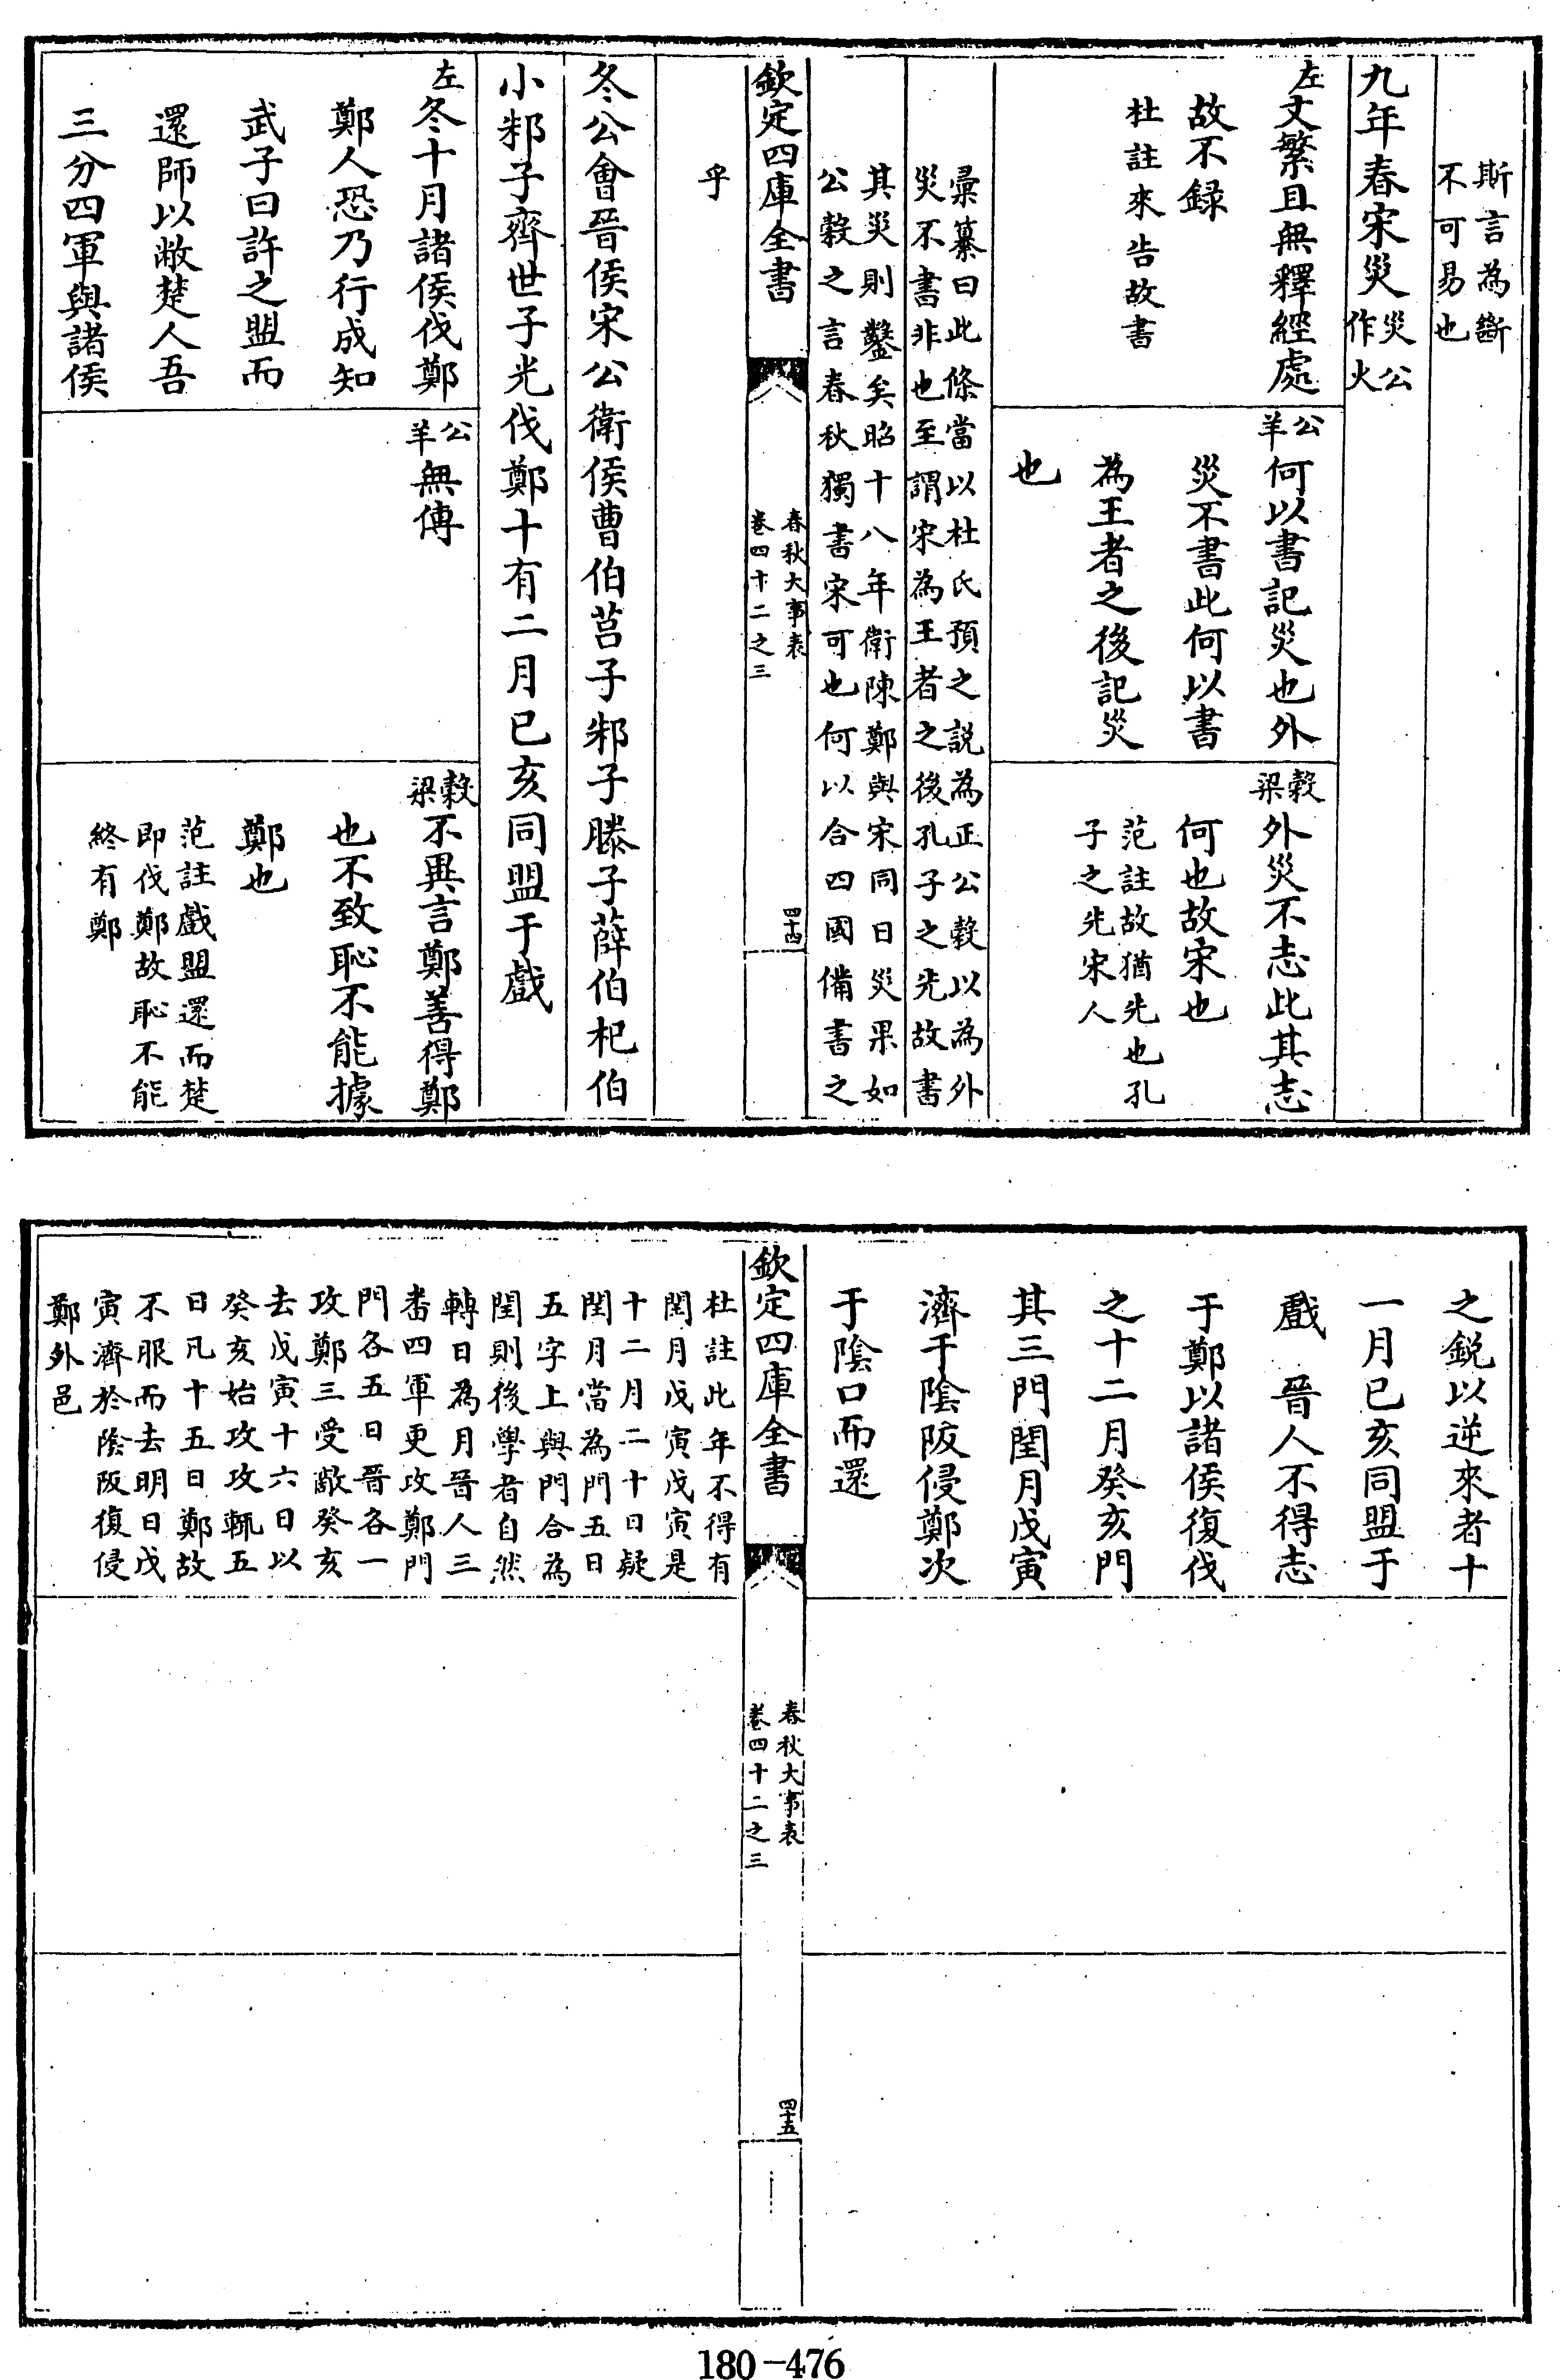 斯言為斷
不可易也
九年春宋災
災公
作火
左文繁且無釋經處
故不録
杜註來告故書
公羊何以書記災也外
災不書此何以書
為王者之後記災
也
穀梁外災不志此其志
何也故宋也
范註故猶先也孔
子之先宋人
彙纂曰此條當以杜氏預之説為正公穀以為外
災不書非也至謂宋為王者之後孔子之先故書
其災則鑿矣昭十八年衛陳鄭與宋同日災果如
公穀之言春秋獨書宋可也何以合四國備書之
欽定四庫全書
春秋大事表
卷四十二之三
四十四
乎
冬公會晉侯宋公衛侯曹伯莒子邾子滕子薛伯杞伯
小邾子齊世子光伐鄭十有二月已亥同盟于戲
左冬十月諸侯伐鄭
鄭人恐乃行成知
武子曰許之盟而
還師以敝楚人吾
三分四軍與諸侯
公羊無傳
穀梁不異言鄭善得鄭
也不致恥不能據
鄭也
范註戲盟還而楚
即伐鄭故恥不能
終有鄭
之鋭以逆來者十
一月已亥同盟于
戲　晉人不得志
于鄭以諸侯復伐
之十二月癸亥門
其三門閏月戊寅
濟于陰阪侵鄭次
于陰口而還
欽定四庫全書
春秋大事表
卷四十二之三
四十五
杜註此年不得有
閏月戊寅戊寅是
十二月二十日疑
閏月當為門五日
五字上與門合為
閏則後學者自然
轉日為月晉人三
番四軍更攻鄭門
門各五日晉各一
攻鄭三受敵癸亥
去戊寅十六日以
癸亥始攻攻輒五
日凡十五日鄭故
不服而去明日戊
寅濟於陰阪復侵
鄭外邑
180-476